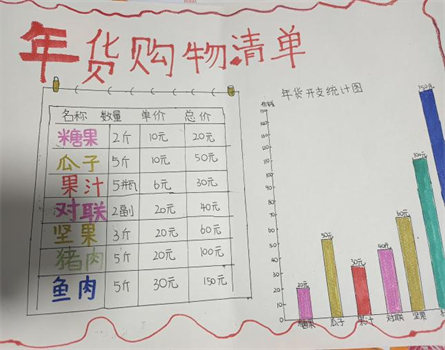 年货购物清单
名称 数量 单价 总价
糖果 2斤 10元 20元
瓜子 5斤 10元 50元
果汁 5瓶 6元 30元
对联 2副 20元 40元
坚果 3斤 20元 60元
猪肉 5斤 20元 100元
鱼肉 5斤 30元 150元
年货开支统计图
20元 50元 30元 40元 60元
糖果 瓜子 果汁 对联 坚果